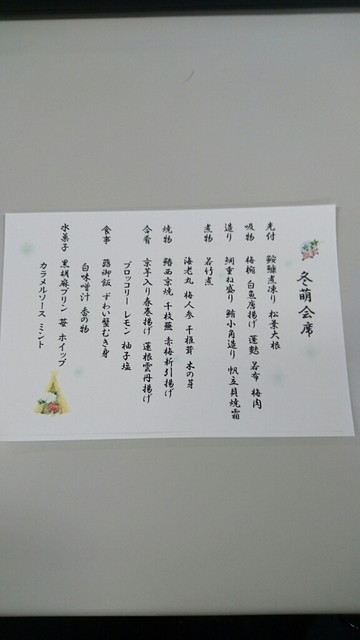 冬萌会席
先付 鮟鱇煮凍り 松葉大根
吸物 梅椀 白魚唐揚げ 蓬麩 若布 梅肉
造り 細重ね盛り 鮪小角造り 帆立貝焼霜
煮物 若竹煮
海老丸 梅人参 干椎茸 木の芽
焼物 鰆西京焼 千枚蕪 赤梅新引揚げ
合肴 京芋入り春巻揚げ 蓮根雲丹揚げ
ブロッコリー レモン 柚子塩
食事 蕗御飯 ずわい蟹むき身
白味噌汁 香の物
水菓子 黒胡麻プリン 苺 ホイップ
カラメルソース ミント